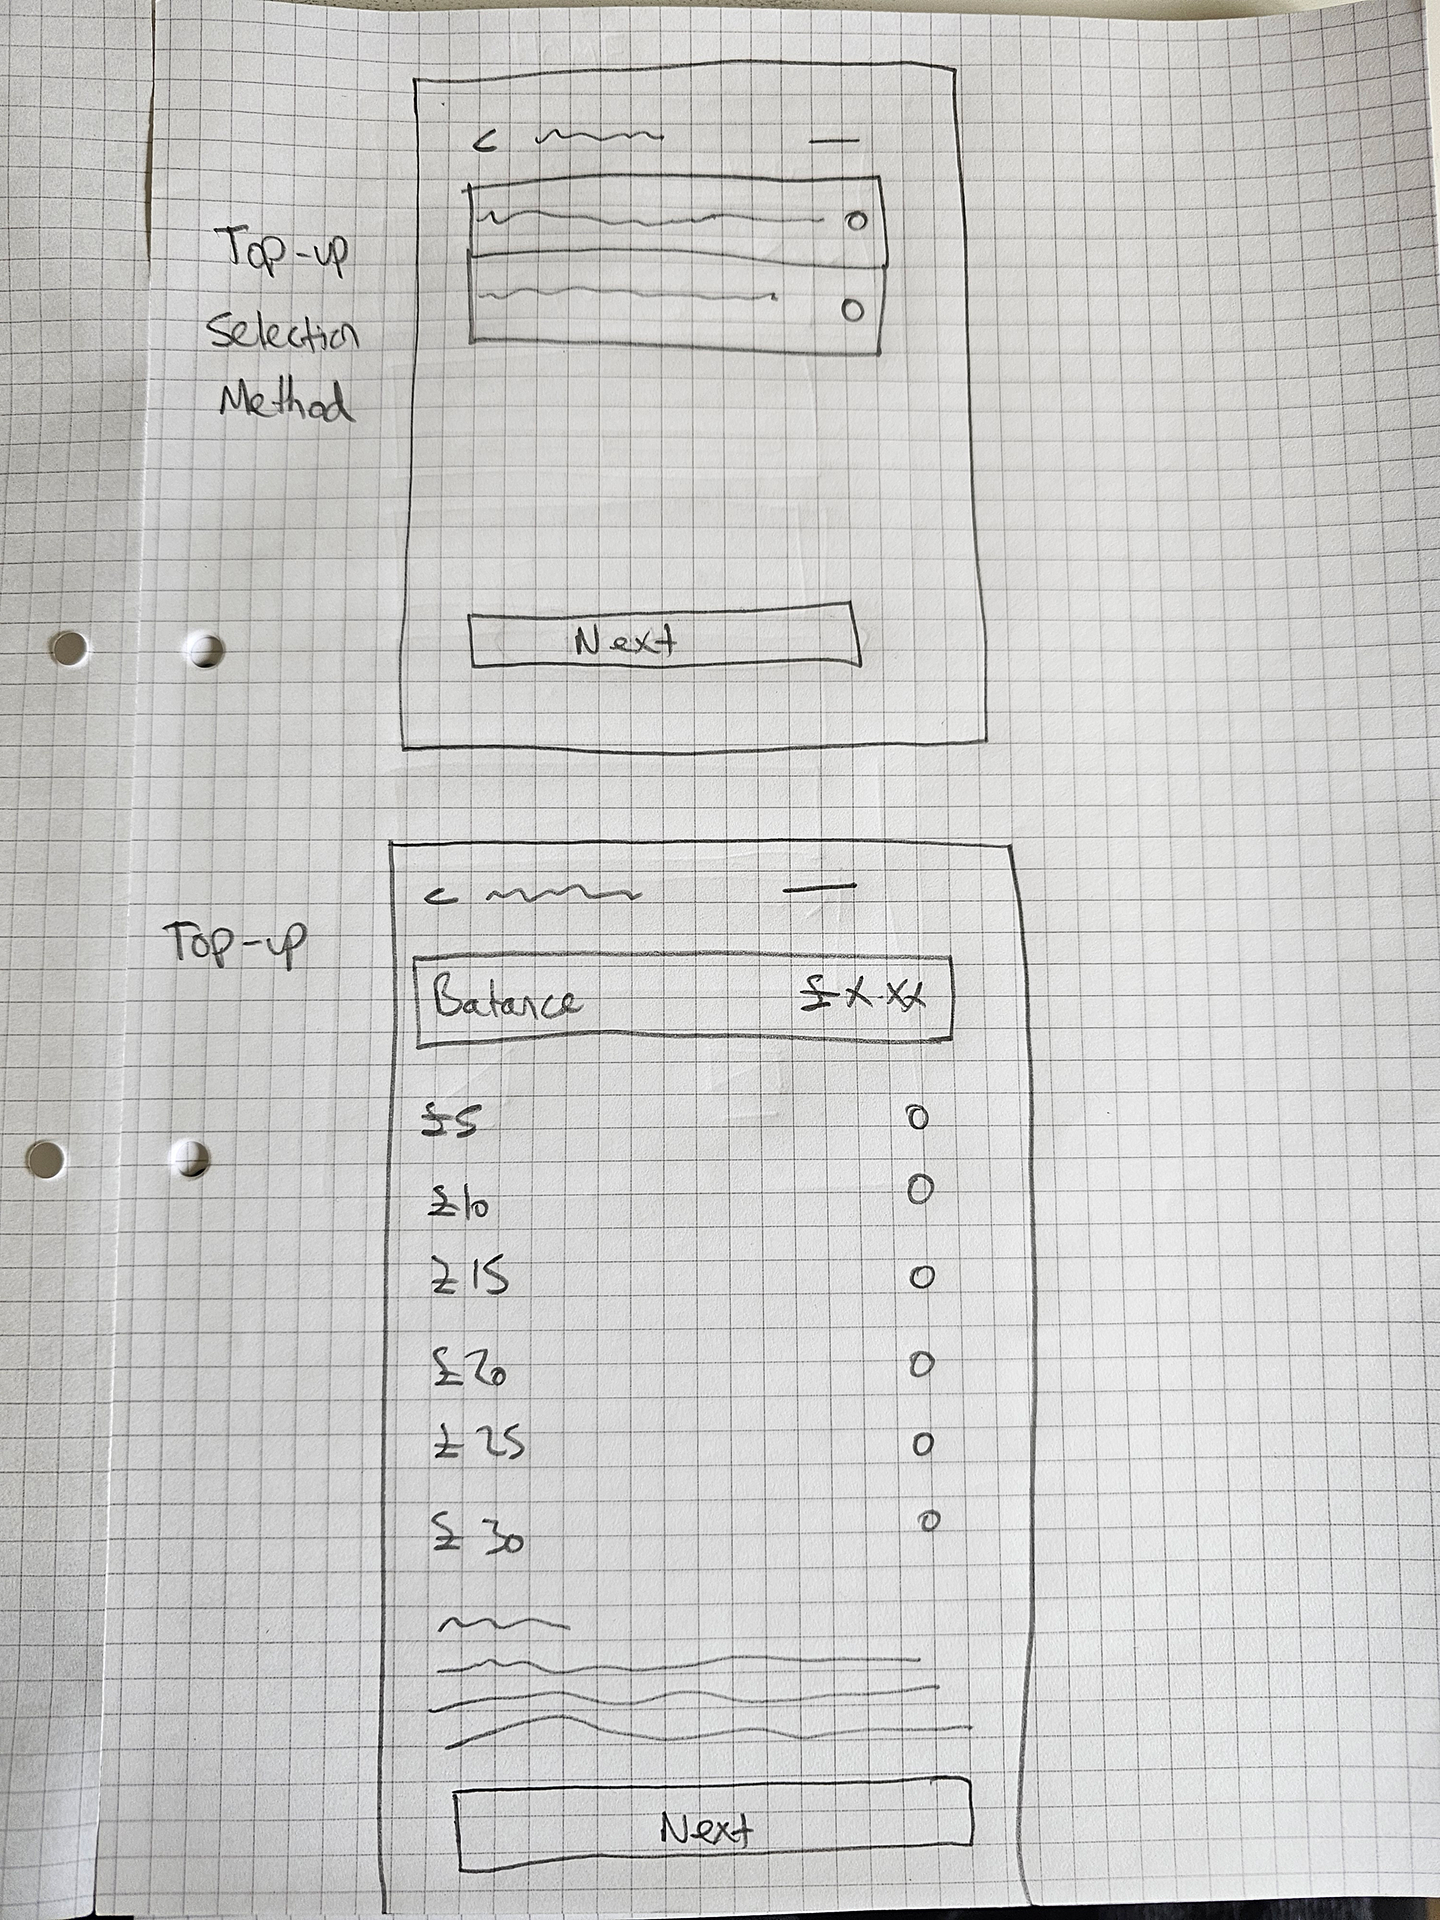 Top-up
Selection
Method
<
Next
Top-up
<
Balance £X.XX
£5
£10
£15
£20
£25
£30
Next